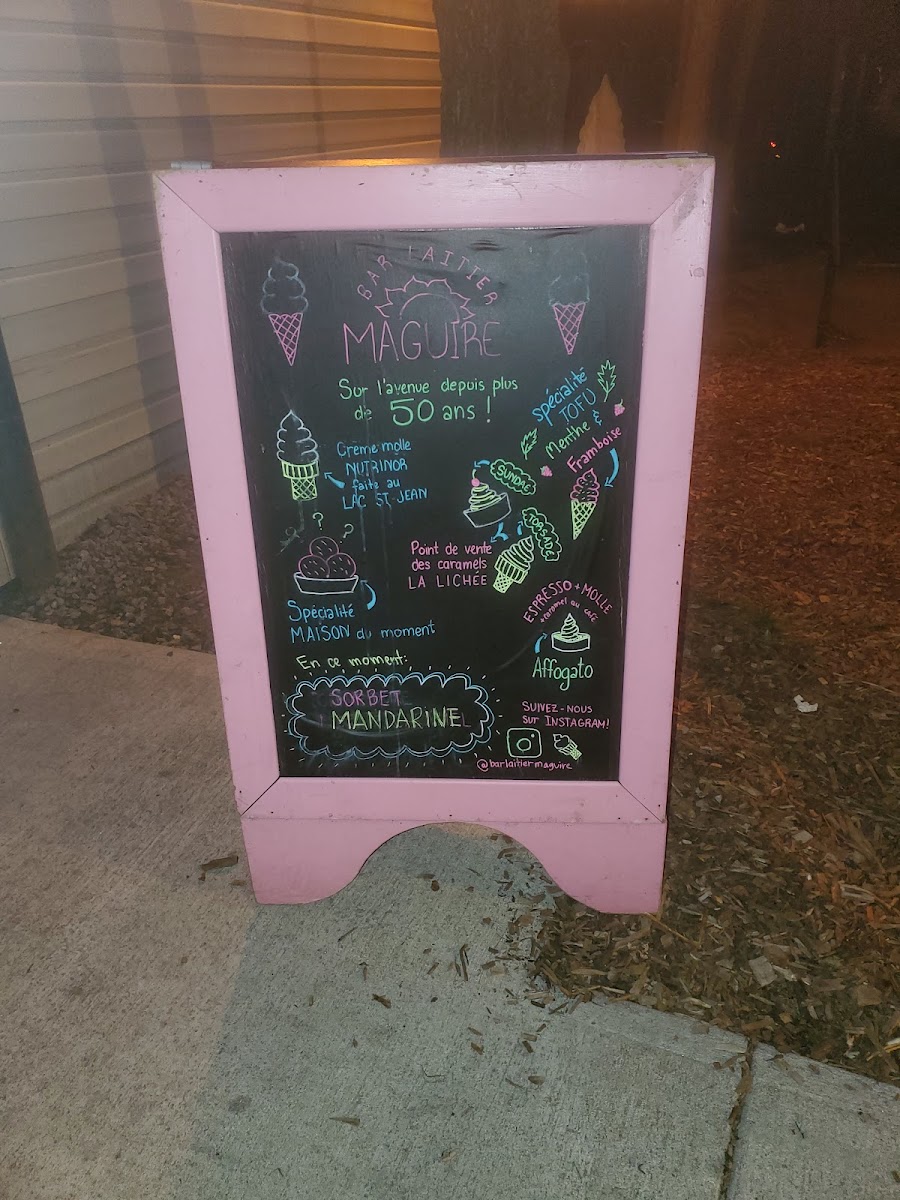 BAR LAITIER
MAGUIRE
Sur l'avenue depuis plus
de 50 ans !
Crème molle
NUTRINOR
faite au
LAC ST-JEAN
spécialité
TOFU
Menthe &
Framboise
SUNDAE
TORNADE
Point de vente
des caramels
LA LICHÉE
? ?
Spécialité
MAISON du moment
ESPRESSO + MOLLE
+ caramel au café
Affogato
En ce moment:
SORBET
MANDARINE
SUIVEZ-NOUS
SUR INSTAGRAM!
@barlaitiermaguire